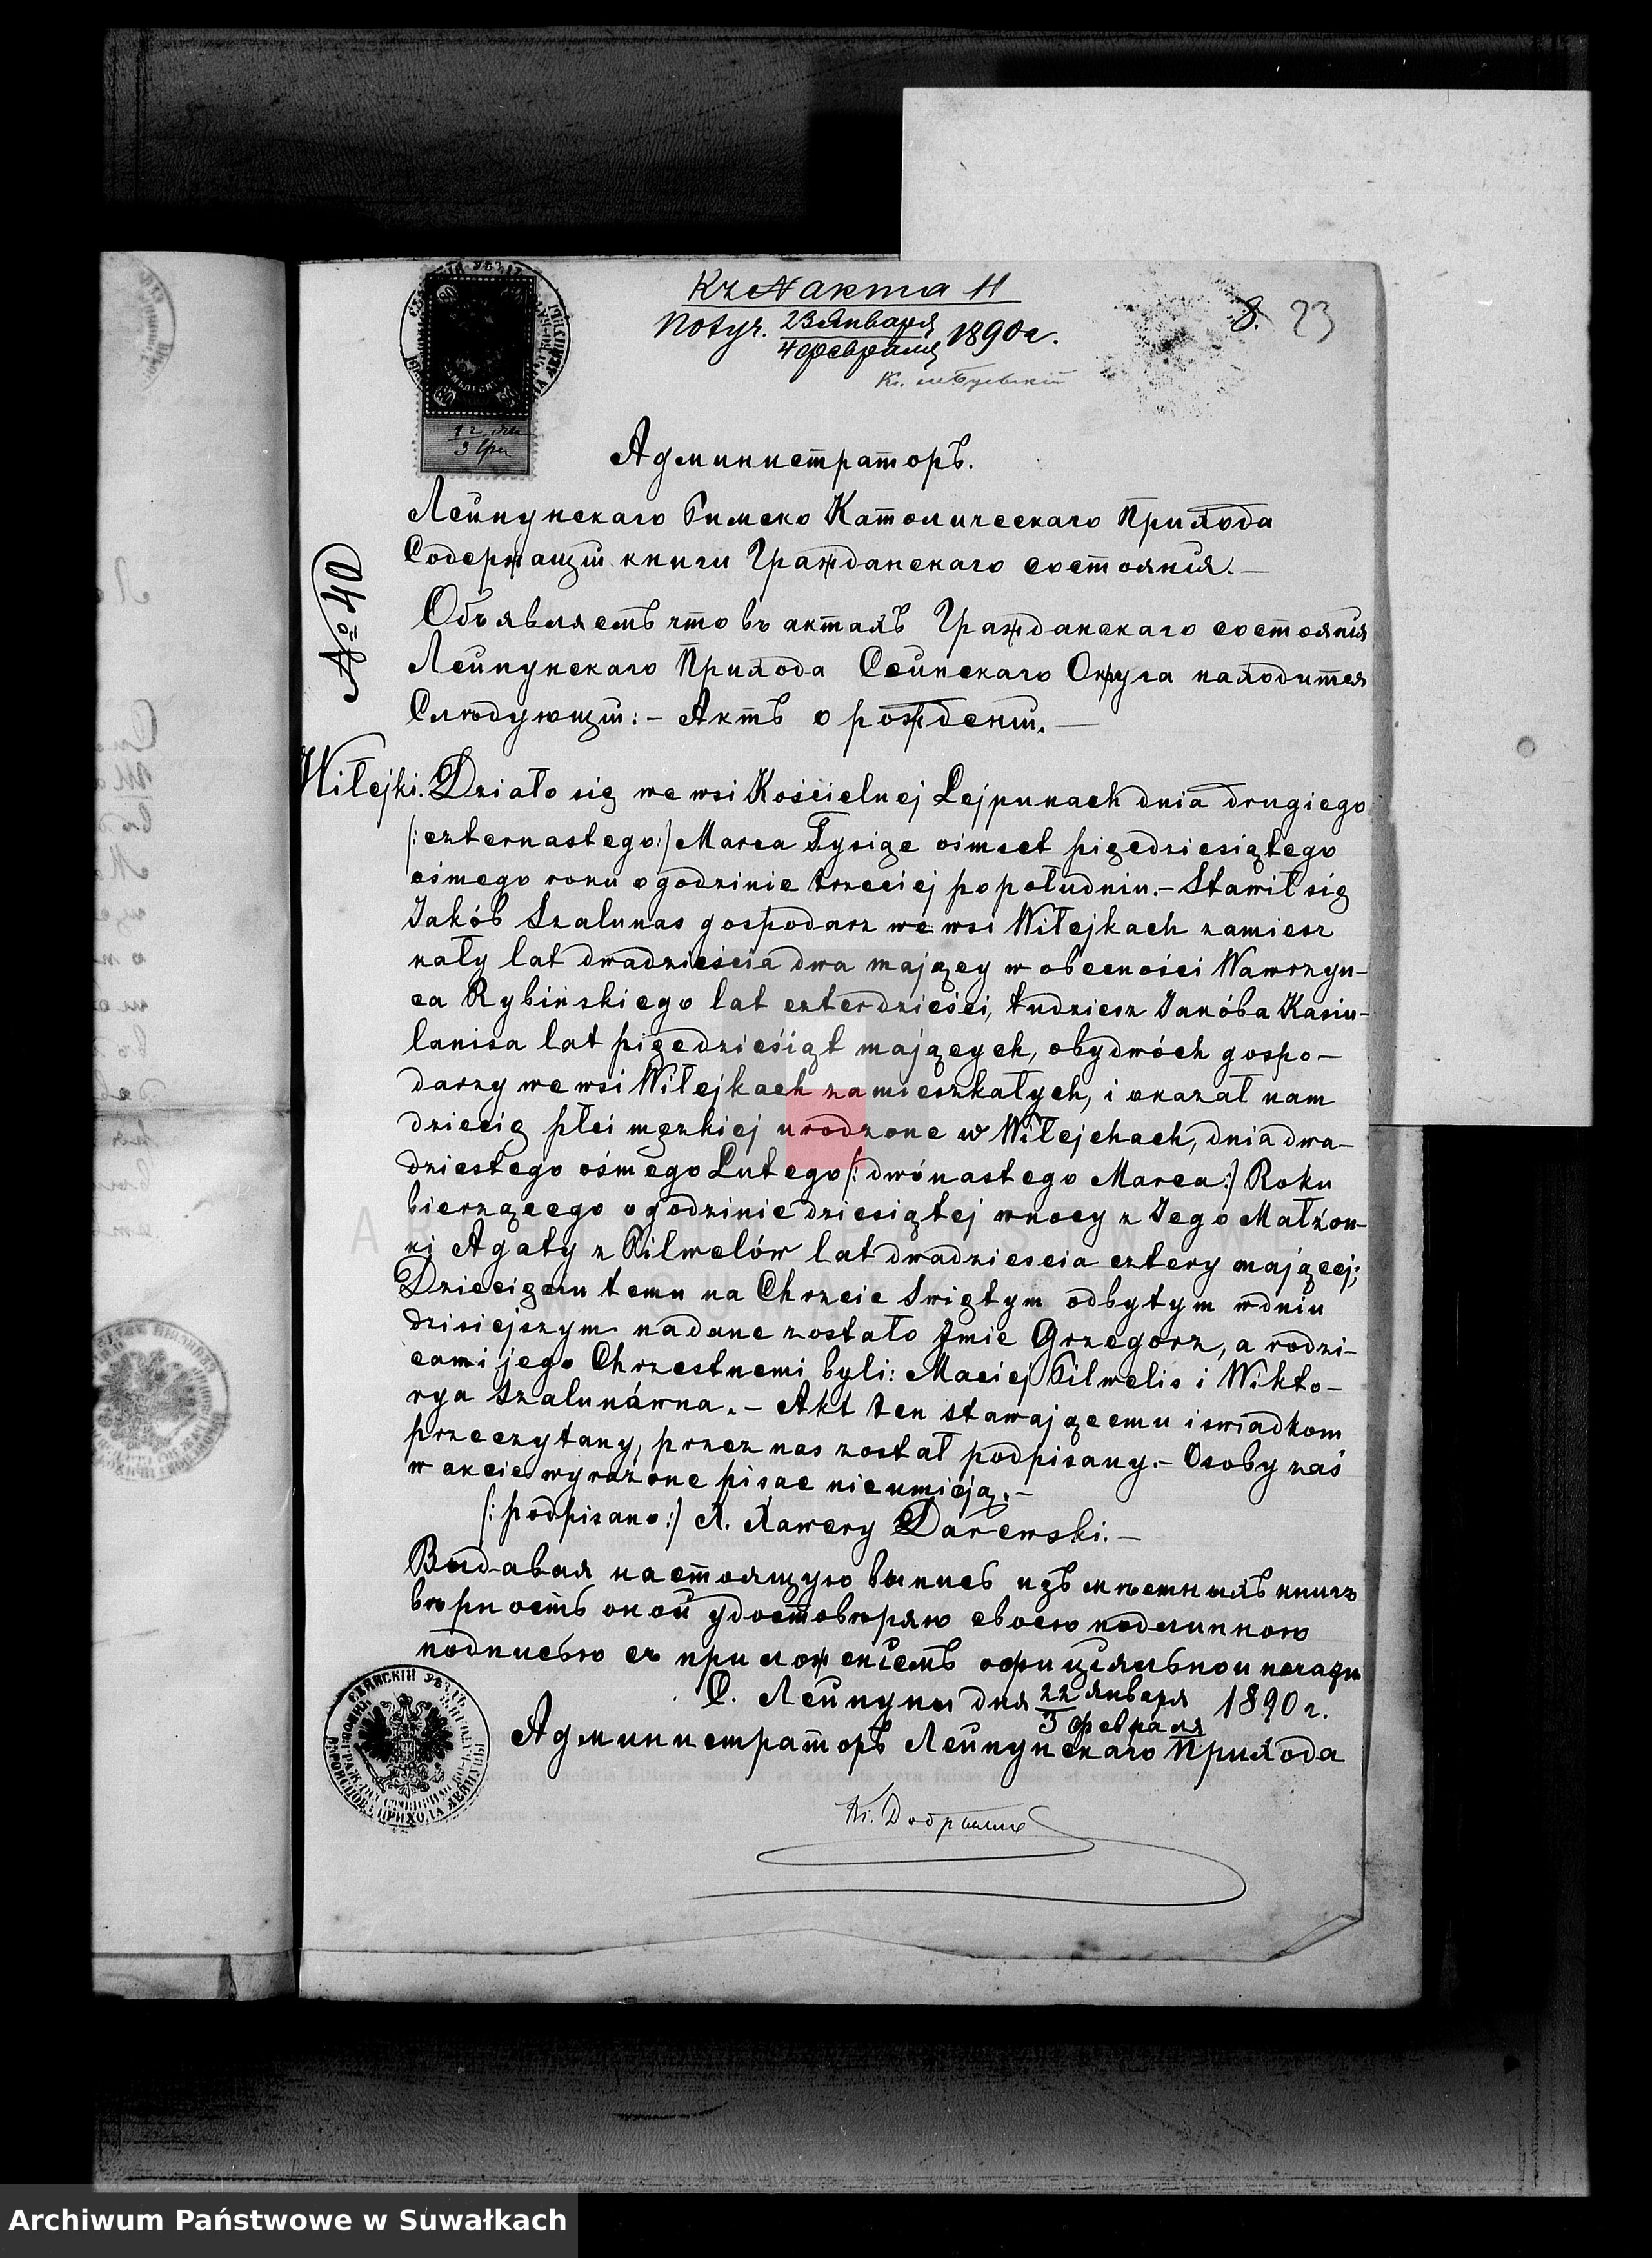 Къ № акта 11
Получ. 23 Января 1890 г.
4 Февраля
8. 23
12 Янв
Администраторъ.
Лейпунскаго Римско Католическаго Прихода
Содержащій книги Гражданскаго состоянія.—
№ 40
Объявляетъ что въ актахъ Гражданскаго состоянія
Лейпунскаго Прихода Сейнскаго Округа находится
Слѣдующій: — Актъ о рожденіи.—
Wiłejki. Działo się we wsi Kościelnej Lejpunach dnia drugiego
/:czternastego:/ Marca Tysiąc ośmset pięcdziesiątego
ośmego roku o godzinie trzeciej popołudniu.— Stawił się
Jakób Szalunas gospodarz we wsi Wiłejkach zamiesz
kały lat dwadzieścia dwa mający w obecności Wawrzyn-
ca Rybińskiego lat czterdzieści, tudziesz Jakóba Kasiu-
lanisa lat pięcdzieśiąt mających, obydwóch gospo-
darzy we wsi Wiłejkach zamieszkałych, i okazał nam
dziecię płci męzkiej urodzone w Wiłejchach, dnia dwa-
dziestego ośmego Lutego /: dwónastego Marca:/ Roku
bierzącego o godzinie dziesiątej w nocy z Jego Małżon-
ki Agaty z Pilwelów lat dwadziescia cztery mającej;
Dziecięciu temu na Chrzcie Swiętym odbytym w dniu
dzisiejszym nadane zostało Jmie Grzegorz, a rodzi-
cami jego Chrzestnemi byli: Maciej Pilwelis i Wikto-
rya Szalunáwna.— Akt ten stawającemu i swiadkom
przeczytany, przez nas został podpisany.— Osoby zaś
w akcie wyrażone pisac nieumieją.—
/: podpisano:/ X. Xawery Darewski.—
Выдавая настоящую выпись изъ мѣстныхъ книгъ
вѣрность оной удостовѣряю своею подлинною
подписью съ приложеніемъ офиціяльной печати
С. Лейпуны дня 22 Января 1890 г.
3 Февраля
Администраторъ Лейпунскаго Прихода
Archiwum Państwowe w Suwałkach